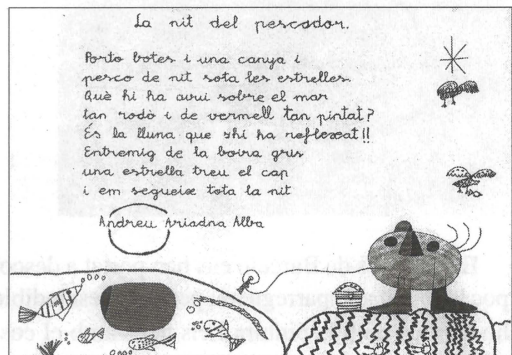 La nit del pescador.
Porto botes i una canya i
pesco de nit sota les estrelles.
Què hi ha avui sobre el mar
tan rodò i de vermell tan pintat?
És la lluna que shi ha reflexat!!
Entremig de la boira gris
una estrella treu el cap
i em segueix tota la nit
Andreu Ariadna Alba